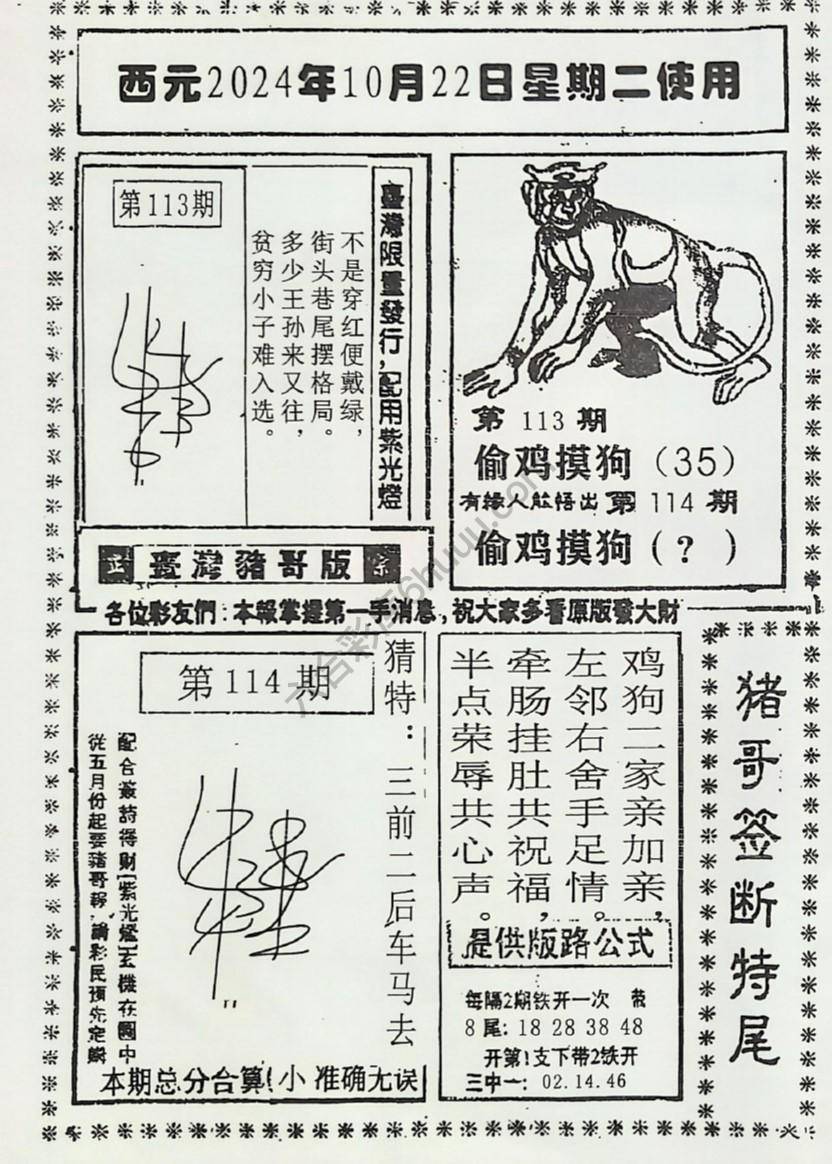 西元2024年10月22日星期二使用
第113期
臺灣限量發行,配用紫光燈
不是穿红便戴绿,
街头巷尾摆格局。
多少王孙来又往,
贫穷小子难入选。
正 臺灣豬哥版 宗
第 113 期
偷鸡摸狗 (35)
有緣人能悟出 第 114 期
偷鸡摸狗 (?)
各位彩友們:本報掌握第一手消息,祝大家多看原版發大財
第114期
猜特:三前二后车马去
配合叢詩得财[紫光燈]玄機在圖中
從五月份起要豬哥報,請彩民預先定購
本期总分合算(小 准确无误
鸡狗二家亲加亲,
左邻右舍手足情。
牵肠挂肚共祝福,
半点荣辱共心声。
提供版路公式
每隔2期铁开一次
8尾:18 28 38 48
开第1支下带2铁开
三中一:02.14.46
猪哥签断特尾
六合彩库6huuu.com